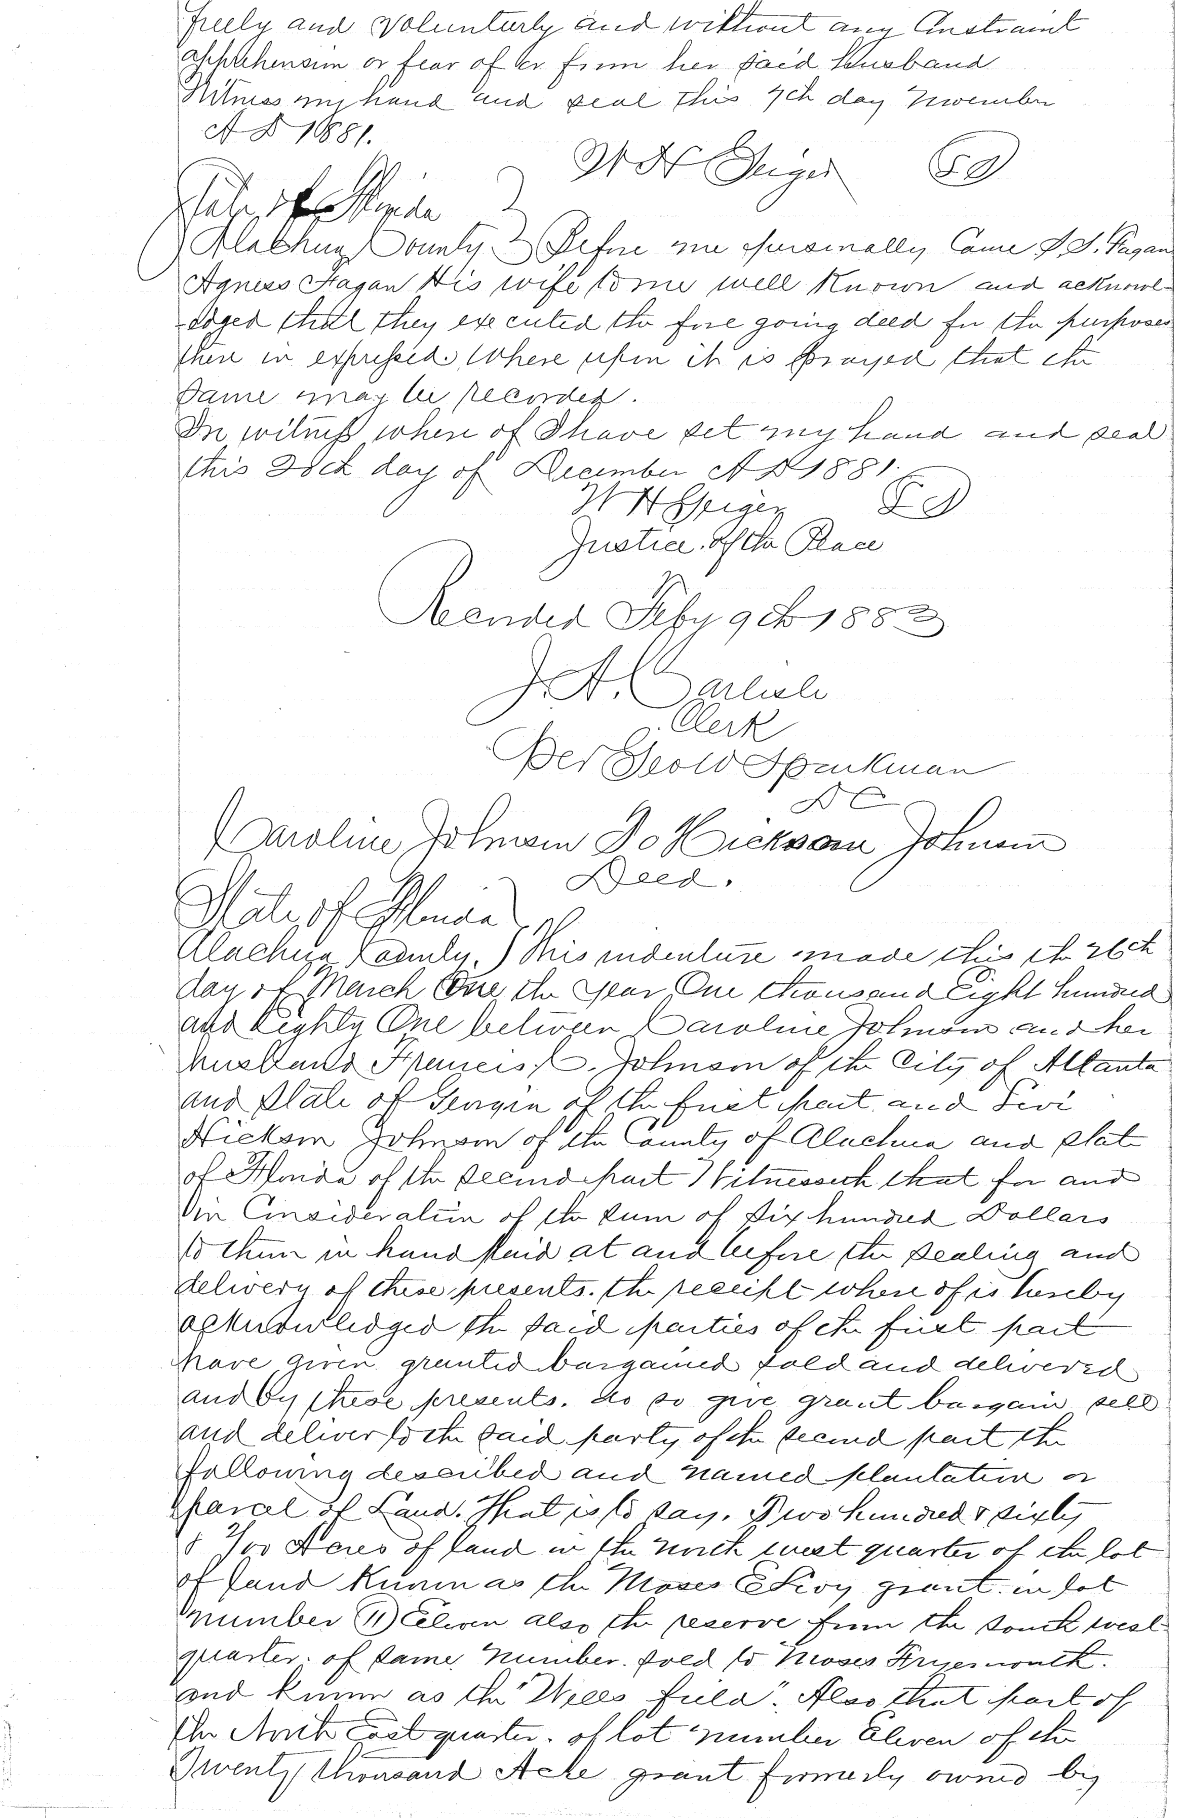 freely and Volunterly and without any Constraint
apprehension or fear of or from her said Husband
Witness my hand and seal this 7th day November
A D 1881.
W H Geiger
State of Florida
Alachua County Before me personally Came Fagan
Agness Fagan His wife to me well Known and acknowl-
edged that they executed the fore going deed for the purposes
there in expressed. Where upon it is prayed that the
Same may be recorded.
In witness where of I have set my hand and seal
this day of December A D 1881.
W H Geiger
Justice of the Peace
Recorded Feby 9th 1883
J. A. Carlisle
Clerk
Per Geo W Sparkman
D C
Caroline Johnson To Hickson Johnson
Deed.
State of Florida
Alachua County. ) This indenture made this the 26th
day of March One the Year One thousand Eight hundred
and Eighty One between Caroline Johnson and her
husband Francis C. Johnson of the City of Atlanta
and State of Georgia of the first part and
Hickson Johnson of the County of Alachua and State
of Florida of the second part Witnesseth that for and
in Consideration of the sum of Six hundred Dollars
to them in hand paid at and before the sealing and
delivery of these presents. the receipt where of is hereby
acknowledged the said parties of the first part
have given granted bargained sold and delivered
and by these presents. do so give grant bargain sell
and deliver to the said party of the second part the
following described and named plantation or
parcel of Land. That is to say. Two hundred & sixty
& 2/100 Acres of land in the North west quarter of the lot
of land Known as the Moses E Levy grant in lot
number (11) Eleven also the reserve from the South west
quarter. of same number. sold to Moses
and known as the "Wells field". Also that part of
the North East quarter. of lot number Eleven of the
Twenty thousand Acre grant formerly owned by